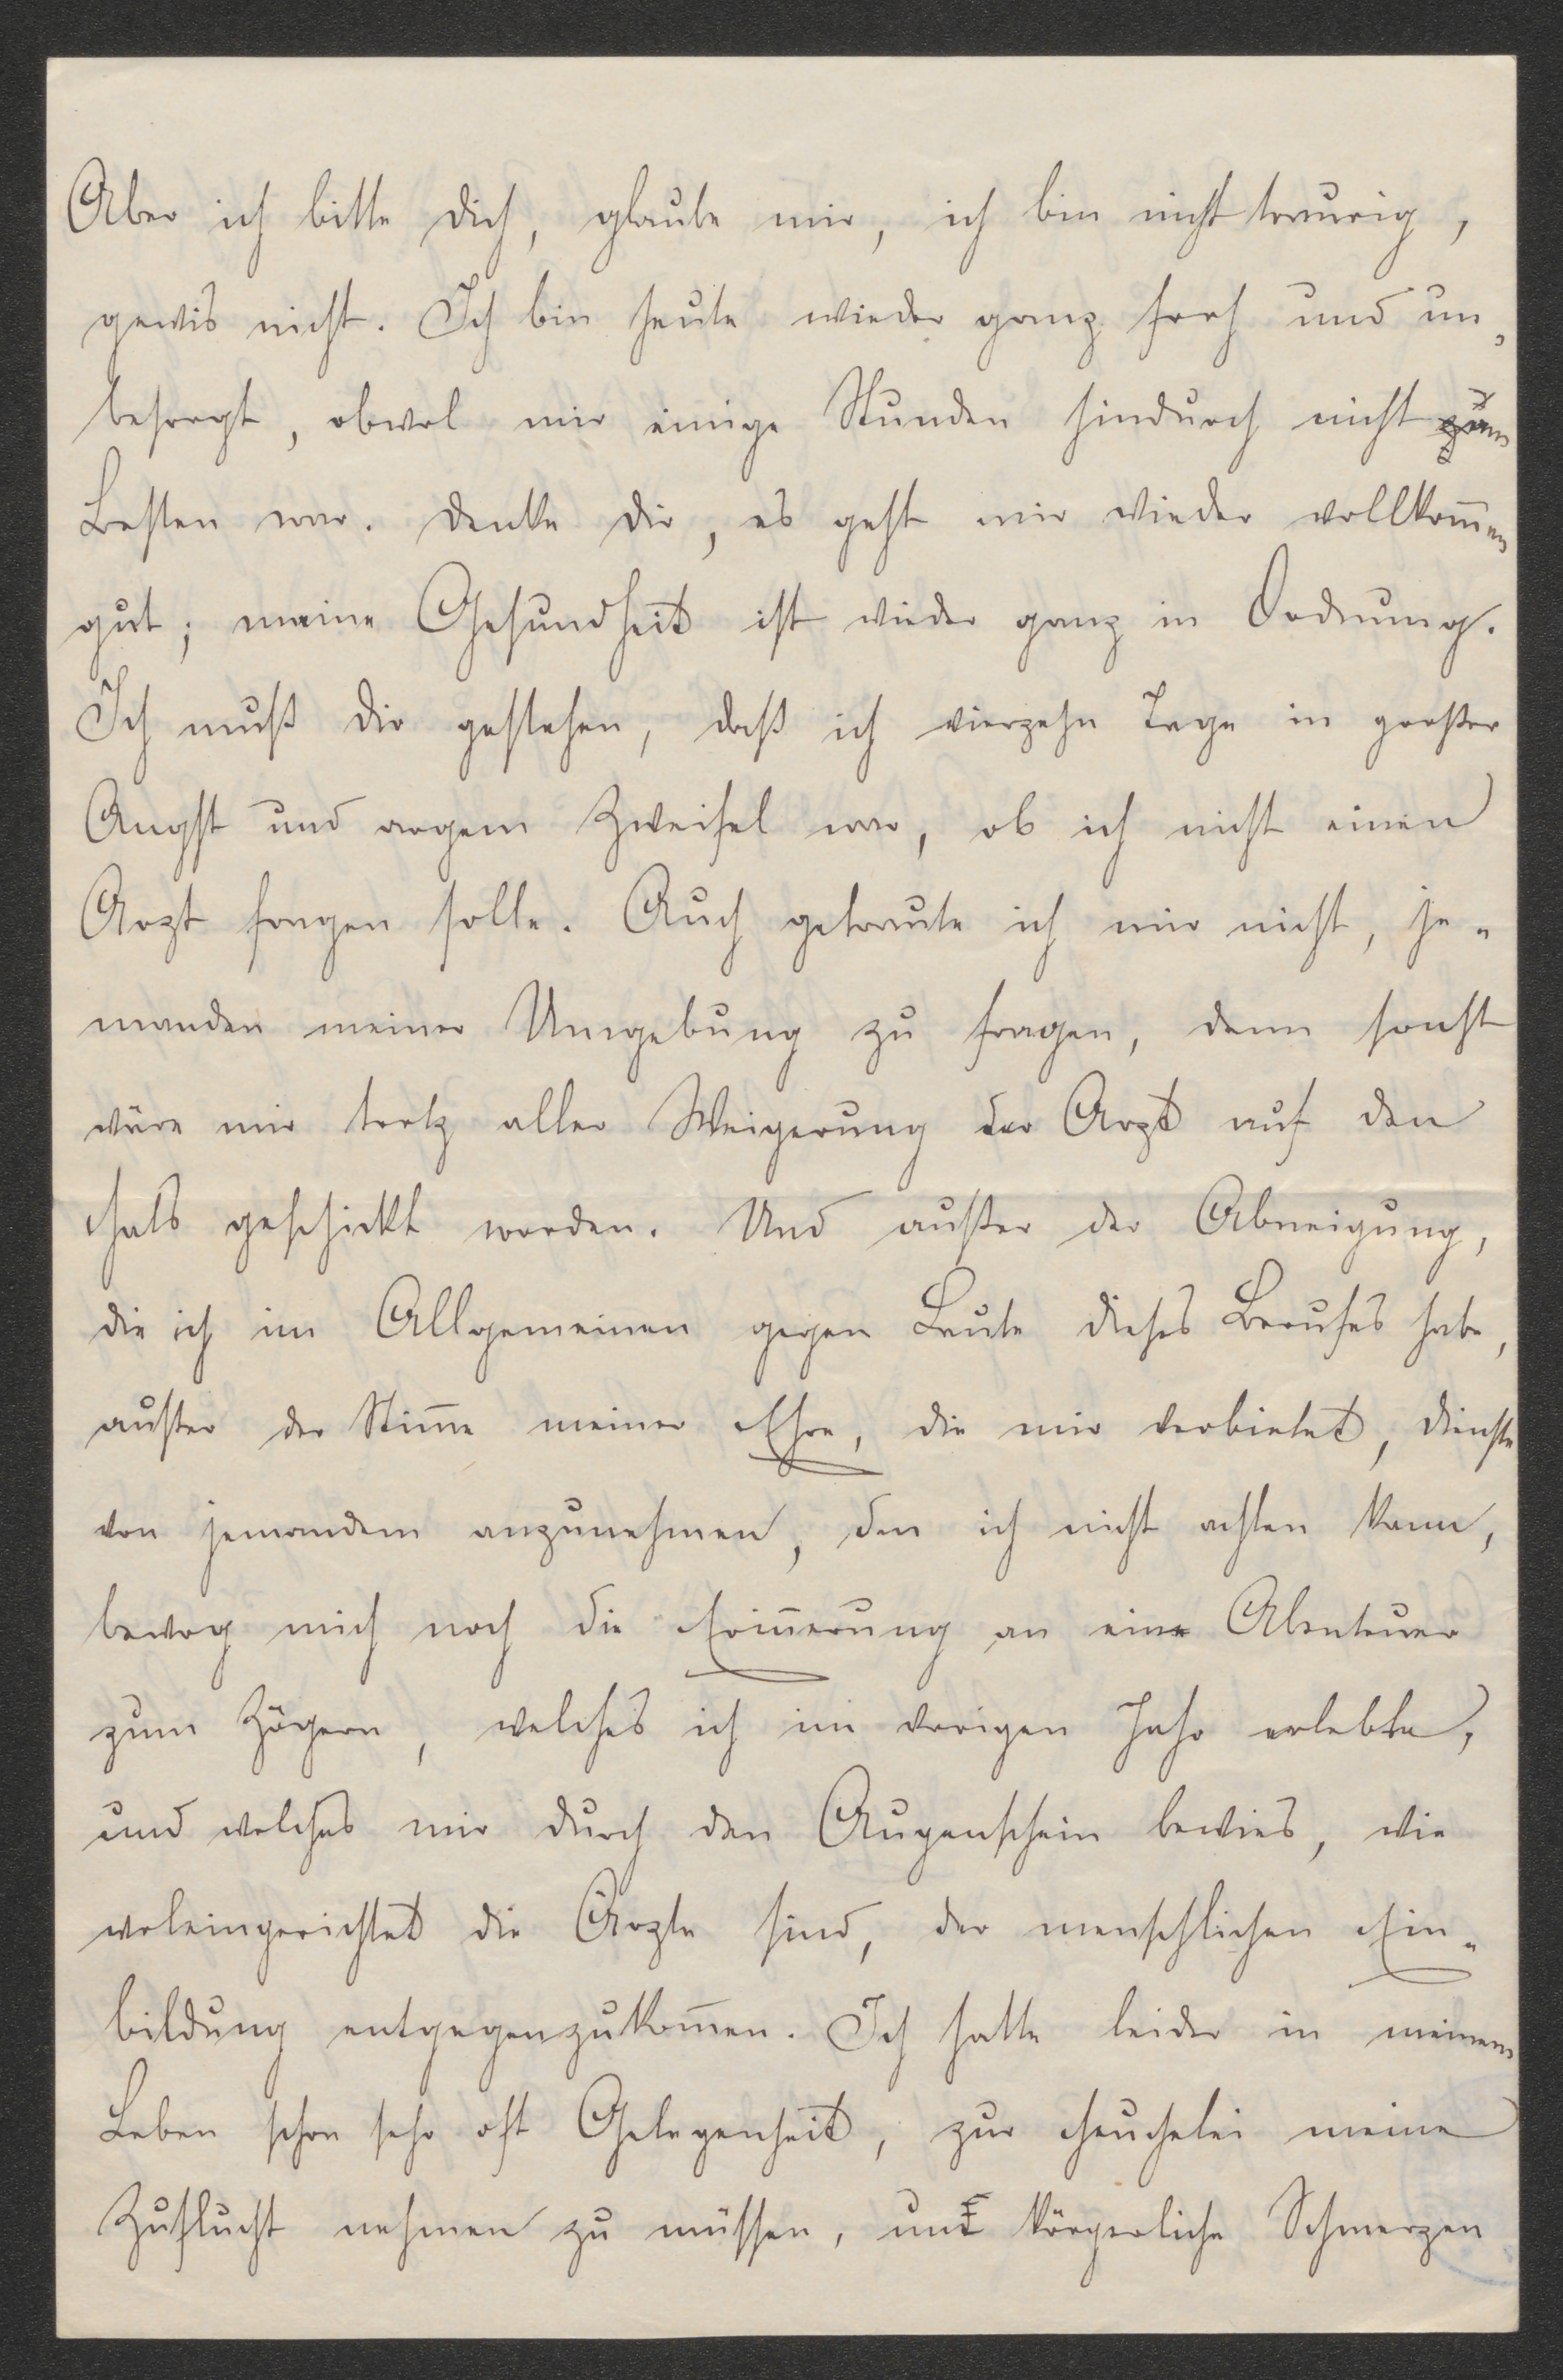 Aber ich bitte dich, glaube mir, ich bin nicht traurig,
gewis nicht. Ich bin heute wieder ganz froh und un„
besorgt, obwol mir einige Stunden hindurch nicht zum
Besten war. Denke dir, es geht mir wieder vollkom̅en
gut; meine Gesundheit ist wieder ganz in Ordnung.
Ich muß dir gestehen, daß ich vierzehn Tage in großer
Angst und argem Zweifel war, ob ich nicht einen
Arzt fragen solle. Auch getraute ich mir nicht, je„
manden meiner Umgebung zu fragen, denn sonst
wäre mir trotz aller Weigerung der Arzt auf den
Hals geschickt worden. Und außer der Abneigung,
die ich im Allgemeinen gegen Leute dieses Berufes habe,
außer der Stim̅e meiner Ehre, die mir verbietet, Dienste
von jemandem anzunehmen, den ich nicht achten kann,
bewog mich noch die Erin̅erung an ein Abenteuer
zum Zögern, welches ich im vorigen Jahr erlebte,
und welches mir durch den Augenschein bewies, wie
woleingerichtet die Ärzte sind, der menschlichen Ein„
bildung entgegenzukom̅en. Ich hatte leider in meinem
Leben schon sehr oft Gelegenheit, zur Heuchelei meine
Zuflucht nehmen zu müssen, und körperliche Schmerzen